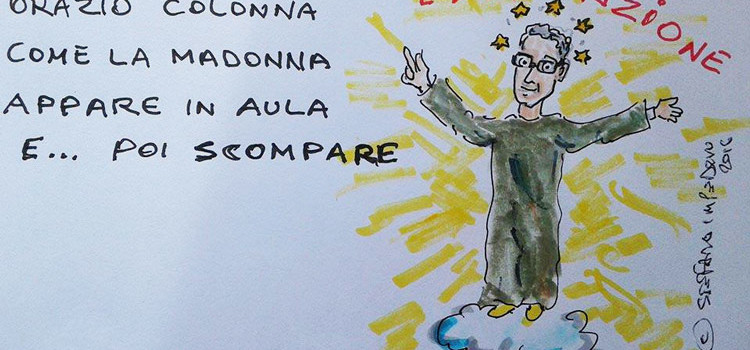 ORAZIO COLONNA
COME LA MADONNA
APPARE IN AULA
E... POI SCOMPARE
© STEFANO IMPEDOVO
2016